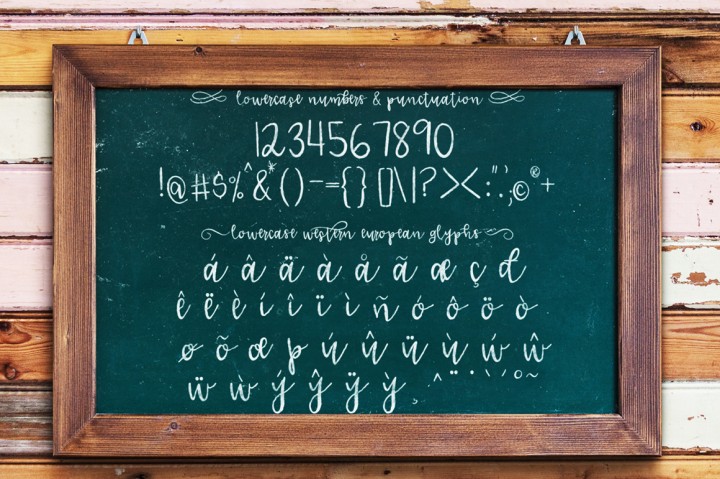 lowercase numbers & punctuation
1234567890
!@#$%^&*()-–={}[]\|?><:"'.,;©®+
lowercase western european glyphs
á â ä à å ã æ ç đ
ê ë è í î ï ì ñ ó ô ö ò
ø õ œ þ ú û ü ù ẃ ŵ
ẅ ẁ ý ŷ ÿ ỳ ¸ ^ ¨ ˙ ` ´ ° ~